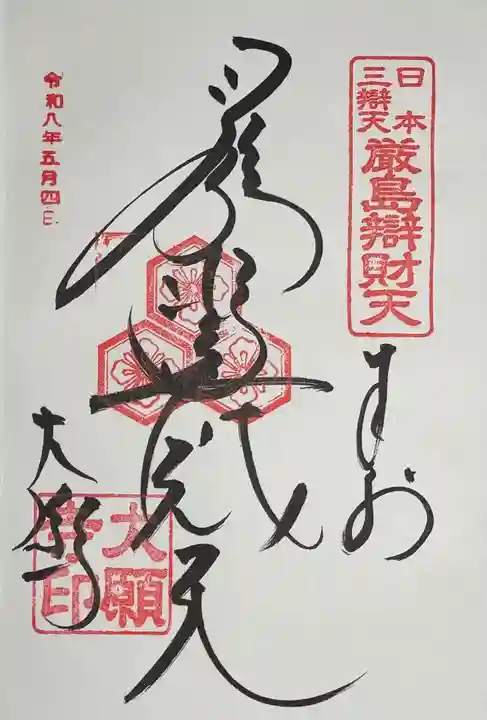 日本
三辯天
厳島辯財天
奉拝
厳島
辯戝天
大願寺
大願
寺印
令和八年五月四日